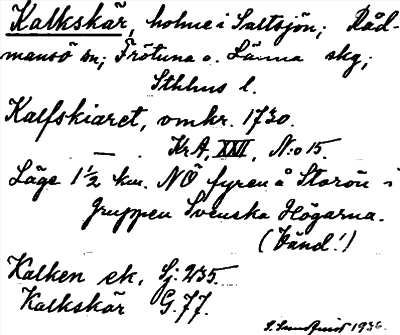 Kalkskär, holme i Saltsjön; Råd-
mansö sn; Frötuna o. Länna skg;
Sthlms l.
Kalfskiaret, omkr. 1730.
— KrA, XXVI, N:o 15.
Läge 1 1/2 km. NÖ fyren å Storön i
gruppen Svenska Högarna.
(Vänd!)
Kalken ek. Sj: 235.
Kalkskär G. 77.
1936.